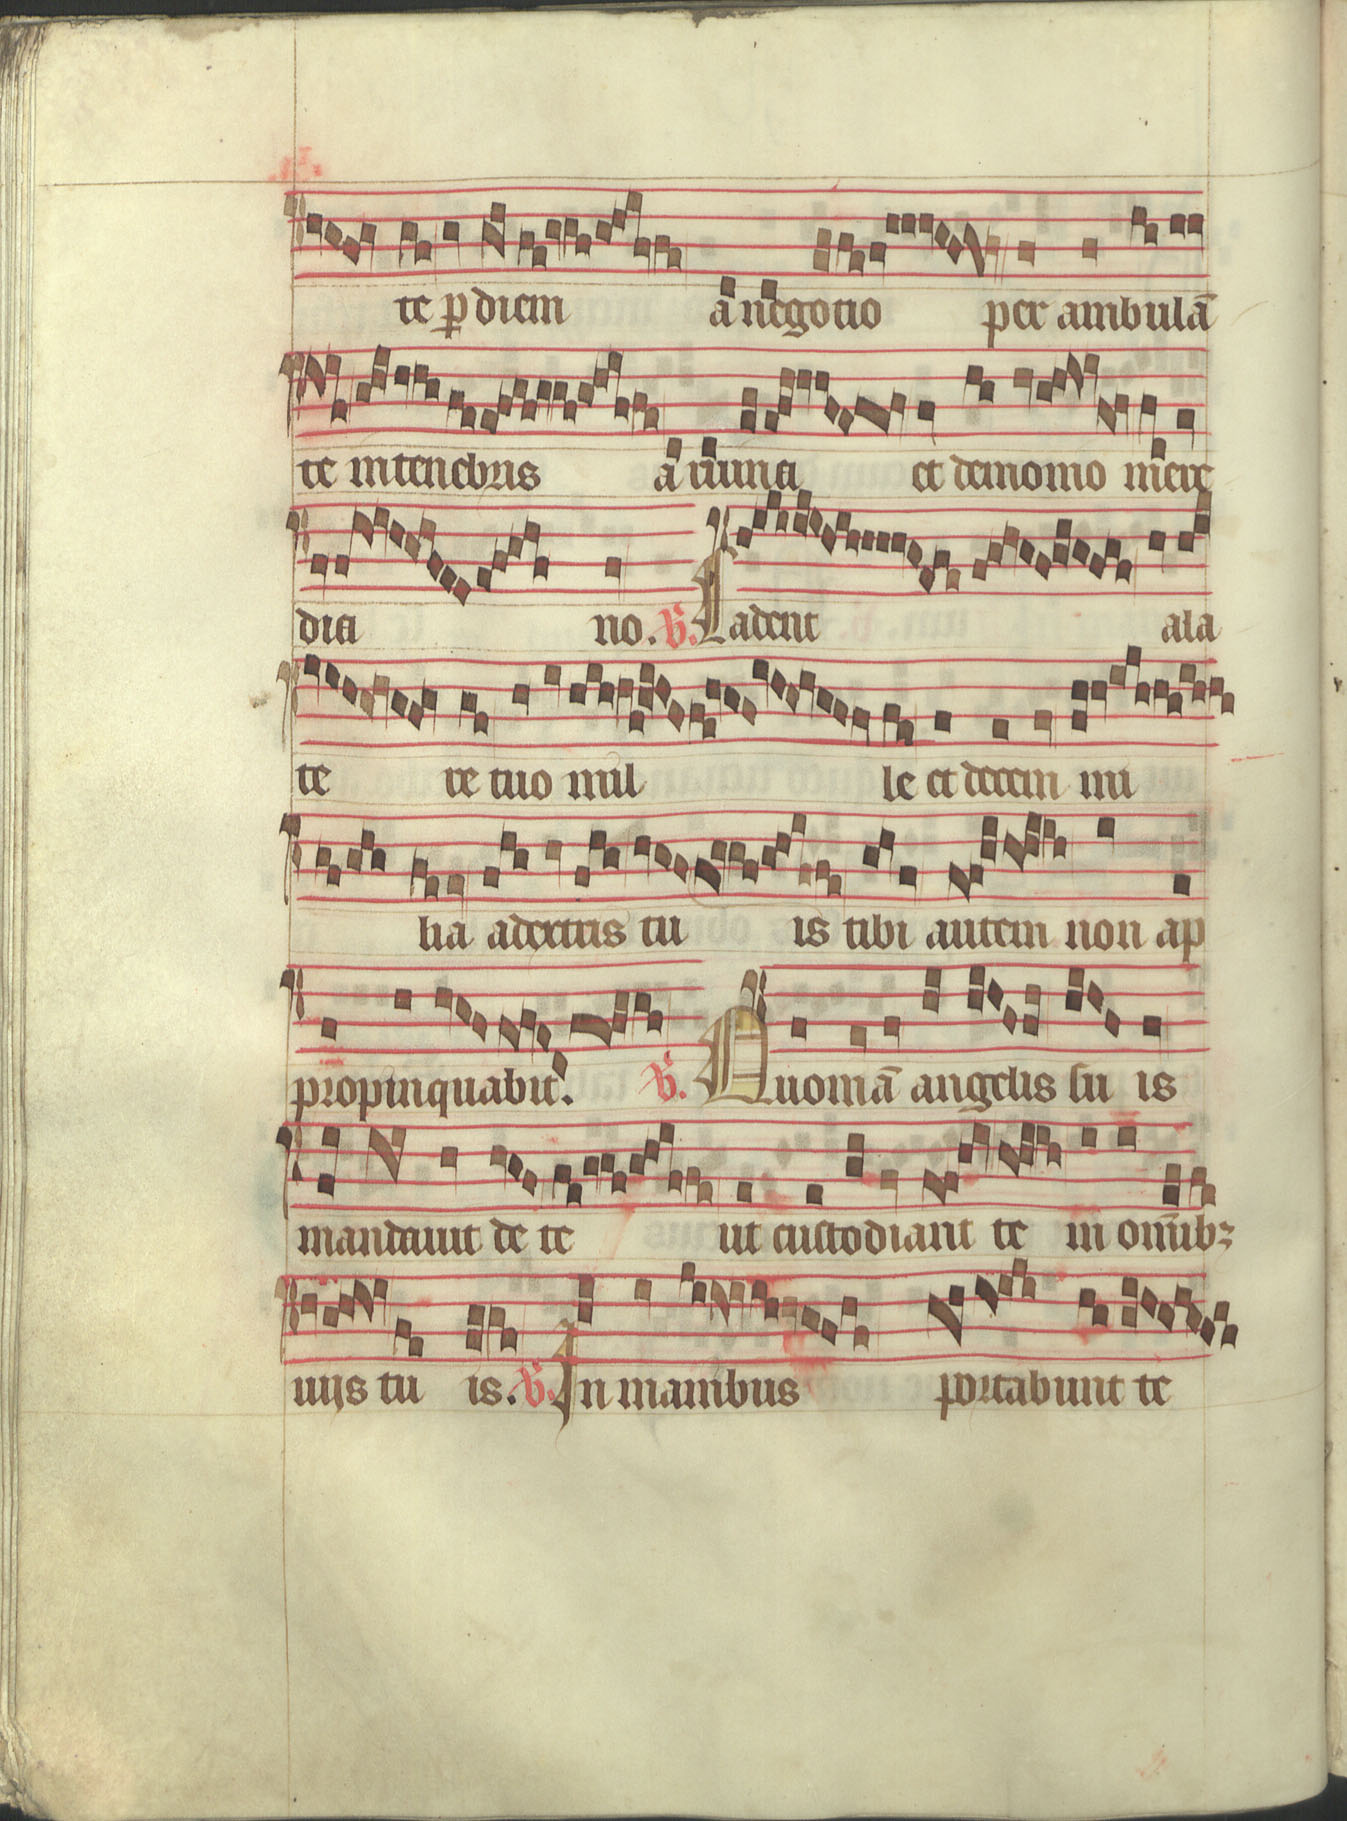 te ꝑ diem a negotio per ambulā
te in tenebris a ruina et demonio mere
dia no. ℣. Cadent a la
te re tuo mil le et decem mi
lia adextris tu is tibi autem non ap
propinquabit. ℣. Quomā angelis su is
mandauit de te ut custodiant te in om̄ib;
uijs tu is. ℣. In manibus portabunt te